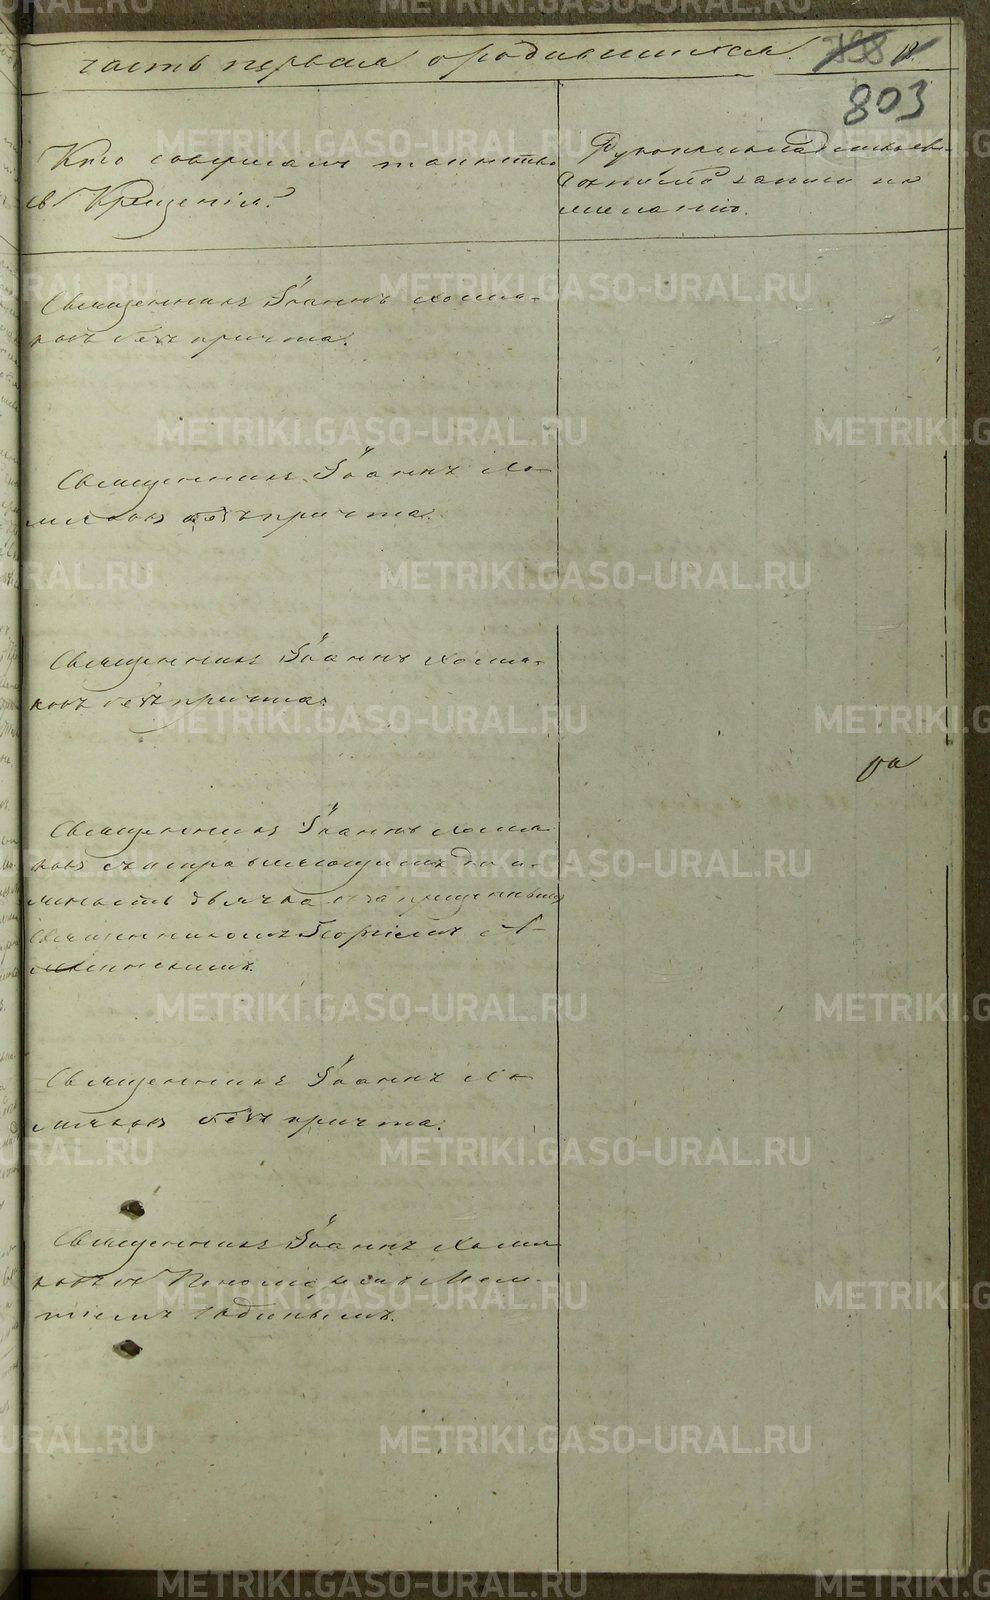 часть первая о родившихся.
803
Кто совершалъ таинство
в Крещенія?
Рукоприкладство сви-
дѣтелей записи по
желанію.
Священникъ Іоаннъ Хомя-
ковъ безъ причта.
Священникъ Іоаннъ Хо-
мяковъ безъ причта.
Священникъ Іоаннъ Хомя-
ковъ безъ причта.
Священникъ Іоаннъ Хомя
ковъ съ исправляющимъ до
лжность дьячка запрещеннымъ
священникомъ Георгіемъ
Священникъ Іоаннъ Хо
мяковъ безъ причта.
Священникъ Іоаннъ Хомя
ковъ съ Пономаремъ
METRIKI.GASO-URAL.RU